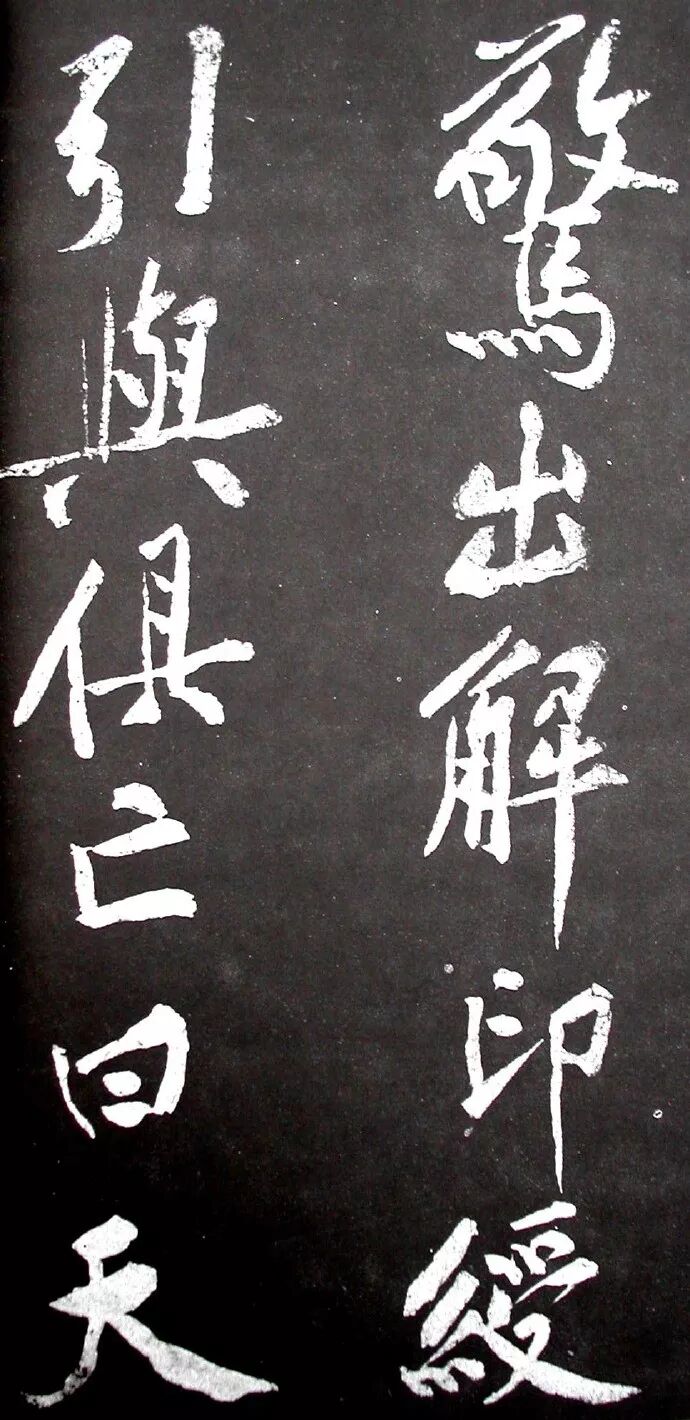 驚出解印綬
引與俱亡曰天